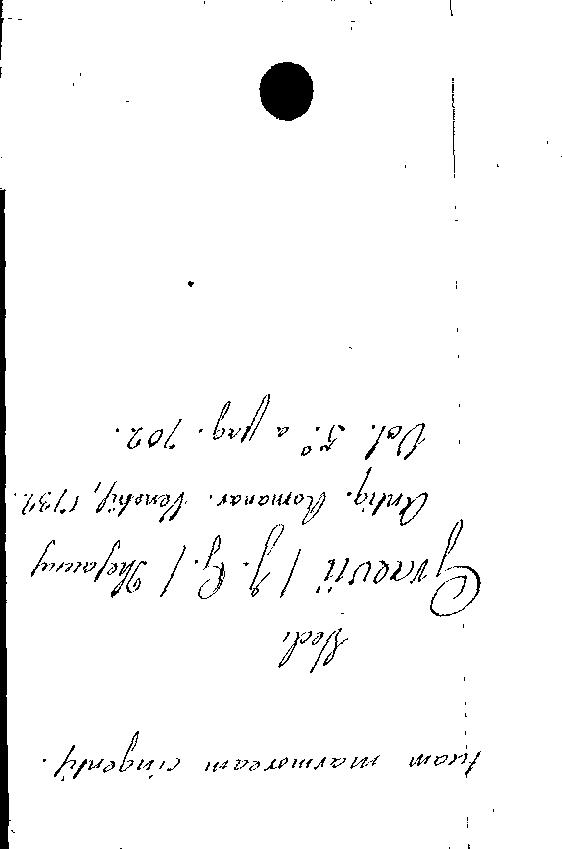 tuam marmoream cingentis.
Vedi
Graevii / J. G. / Thesaurus
Antiq. Romanar. Venetijs, 1732.
Vol. 5.° a pag. 702.